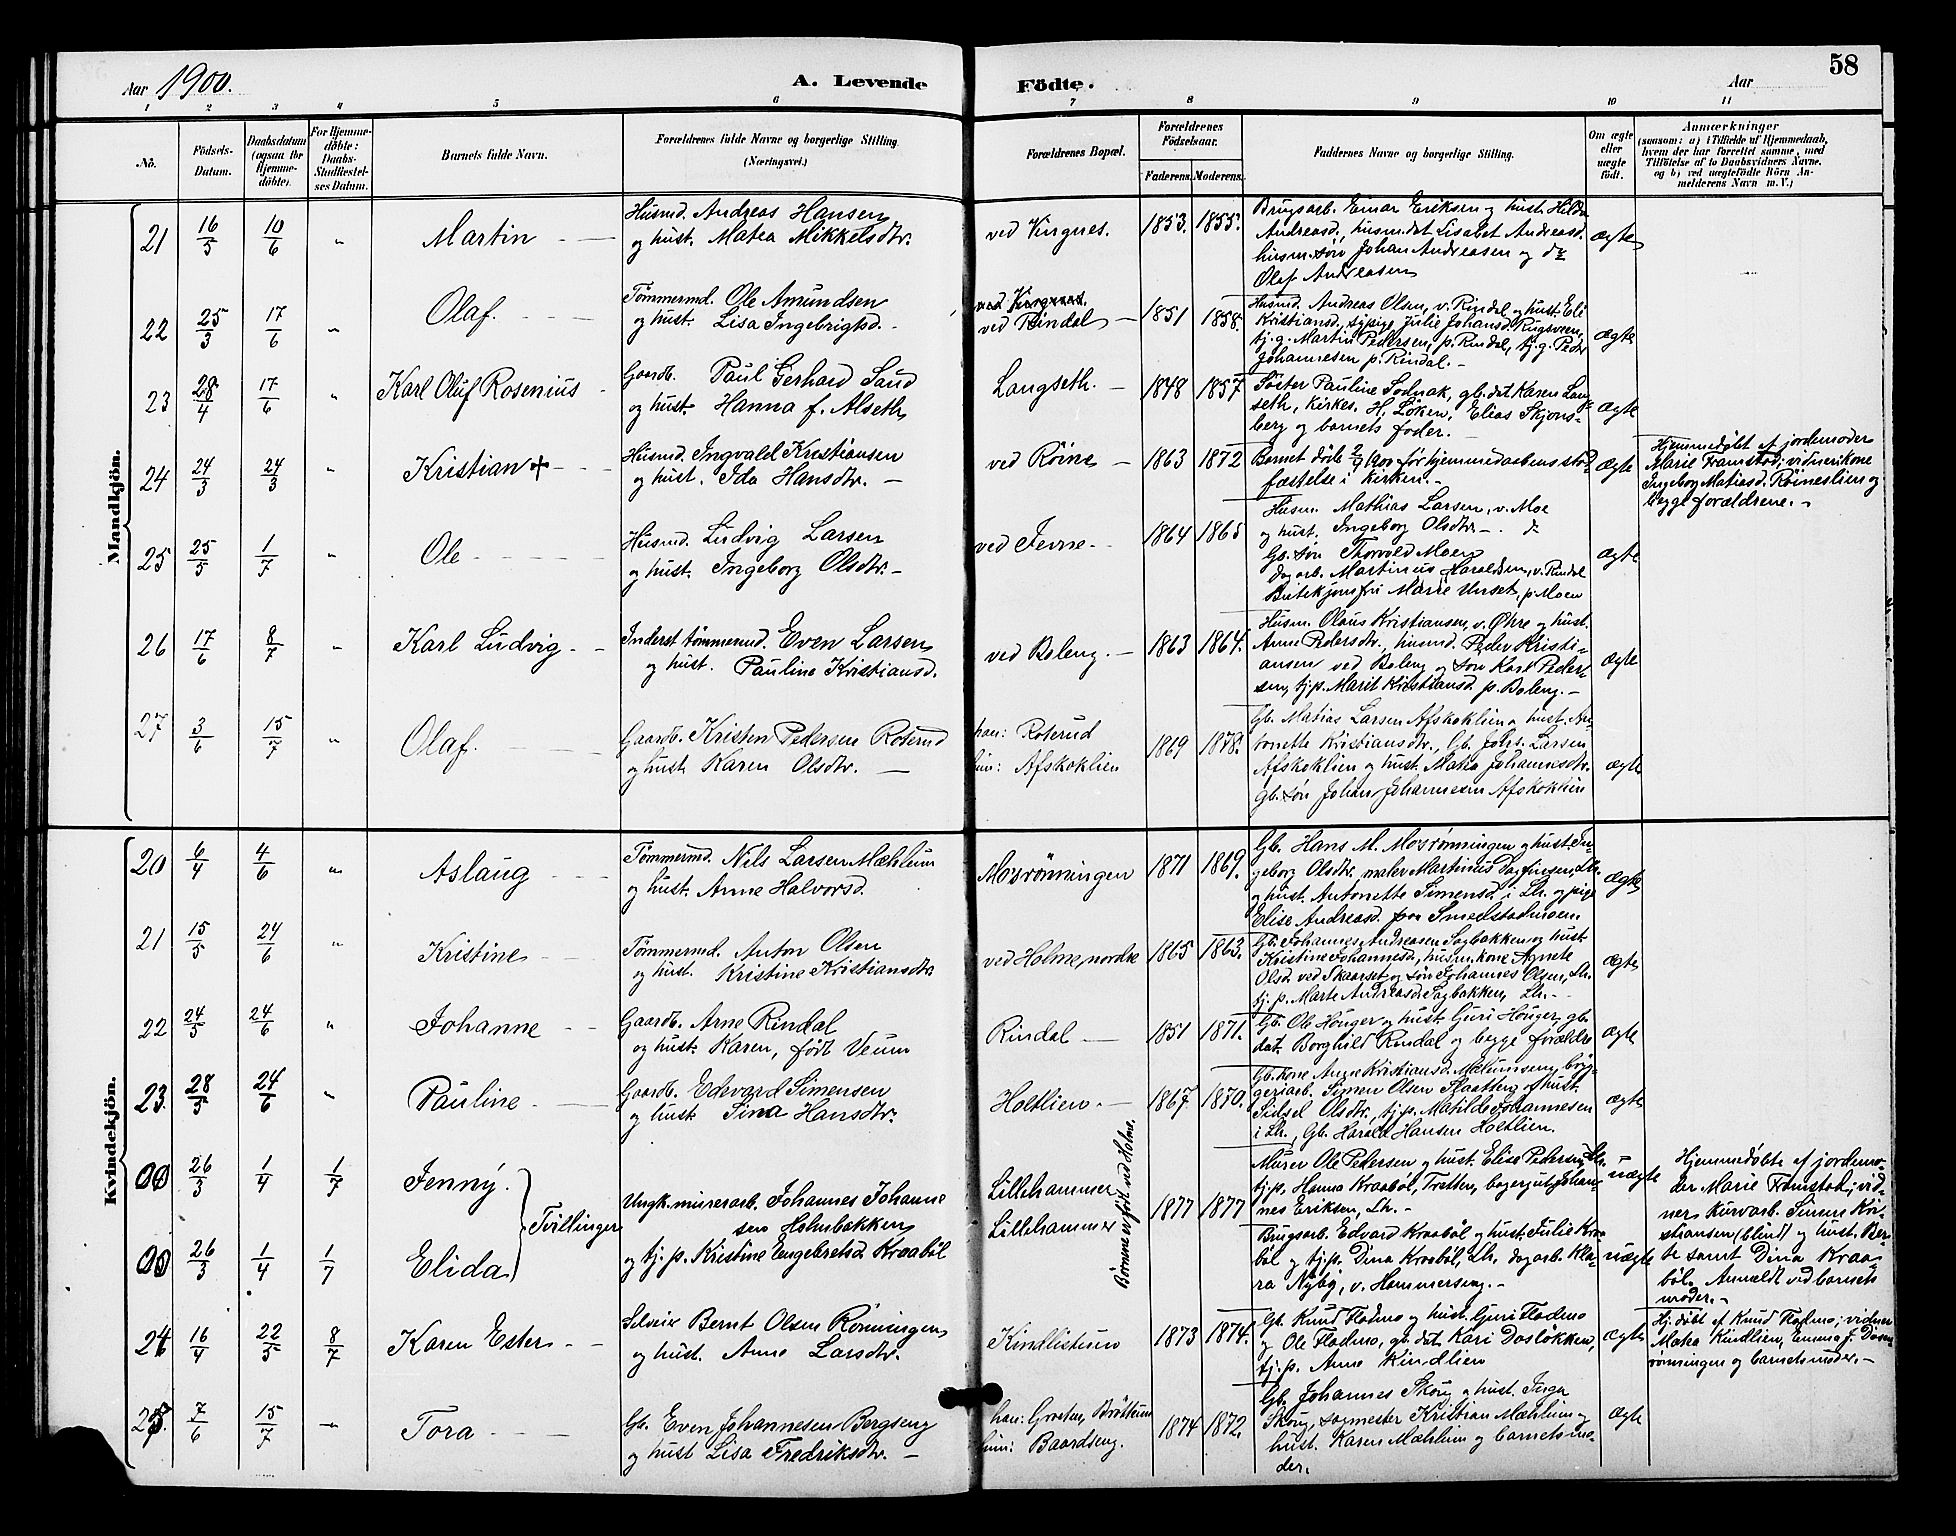 58
Aar 1900.
A. Levende
Födte.
Aar
1 2 3 4 5 6 7 8 9 10 11
No.
Födsels-
Datum.
Daabsdatum
(ogsaa for
Hjemme-
döbte).
For Hjemme-
döbte:
Daabs-
Stadfæstel-
ses Datum.
Barnets fulde Navn.
Forældrenes fulde Navne og borgerlige Stilling
(Næringsvei.)
Forældrenes Bopæl.
Forældrenes
Födselsaar.
Faderens. Moderens.
Faddernes Navne og borgerlige Stilling.
Om ægte
eller
uægte
födt.
Anmærkninger
(saasom: a) i Tilfælde af Hjemmedaab,
hvem der har forrettet samme, med
Tilföielse af to Daabsvidners Navne,
og b) ved uægtefödte Börn An-
melderens Navn m. V.)
Mandkjön.
21 16/5 10/6 „ Martin
Husmd. Andreas Hansen
og hust. Matea Mikkelsdtr.
ved Vingnes. 1853. 1855.
Brugsarb. Einar Eriksen og hust. Hilda
Andreasd., husm.dat Lisabet Andreasd.
husm.søn Johan Andreasen og do
Olef Andreasen
ægte
22 25/3 17/6 „ Olaf.
Tømmermd. Ole Amundsen
og hust. Lisa Ingebrigtsd.
ved Rindal 1851 1858.
Husmd. Andreas Olsen, v. Rindal og hust. Eli
Kristiansd., sypige Julie Johansd. Rugsveen,
tj.g. Martin Pedersen, p. Rindal, tj.g. Peder
Johannesen p. Rindal.
ægte
23 28/4 17/6 „ Karl Oluf Rosenius
Gaardb. Paul Gerhard Saud
og hust. Hanna f. Alseth
Langseth. 1848 1857
Søster Pauline Sodnak, gb.dat Karen Lang-
seth, Kirkes. H. Løken, Elias Skjons-
berg og barnets fader.
ægte
24 24/3 24/3 Kristian +
Husmd. Ingvald Kristiansen
og hust. Ida Hansdtr.
ved Röine 1863 1872
Barnet døde 2/4 1900 før hjemmedaabens stad-
fæstelse i Kirken.
ægte
Hjemmedøbt af jordemoder
Marie Framstad; vidner: kone
Ingeborg Matiasd. Röineslien og
begge forældrene.
25 25/5 1/7 „ Ole
Husmd. Ludvig Larsen
og hust. Ingeborg Olsdtr.
ved Jevne. 1864 1865
Husm. Mathias Larsen, v. Moe
og hust. Ingeborg Olsdtr. do
Gb. søn Thorvold Moen
Dagarb. Martinius Haraldsen, v. Rindal
Butikjomfru Marie Urset, p. Moen
ægte
26 17/6 8/7 „ Karl Ludvig
Inderst tømmermd. Even Larsen
og hust. Pauline Kristiansd.
ved Baleng. 1863 1864.
Husm. Olaus Kristiansen, v. Øhre og hust.
Anne Pedersdtr., husmd. Peder Kristi-
ansen ved Baleng og søn Karl Peder-
sen, tj.p. Marit Kristiansd. p. Baleng.
ægte
27 3/6 15/7 „ Olaf.
Gaardb. Kristen Pedersen Roterud
og hust Karen Olsdtr.
han: Roterud
hun: Afskoklien
1869 1878.
Gb. Matias Larsen Afskoklien og hust. An-
tonette Kristiansdtr., Gb. Johs. Larsen
Afskoklien og hust. Matea Johannesdtr.
gb. søn Johan Johannesen Afskoklien
ægte
Kvindekjön.
20 6/4 4/6 „ Aslaug
Tømmermd. Nils Larsen Mæhlum
og hust. Anne Halvorsd.
Mosrønningen 1871 1869.
Gb. Hans M. Mosrønningen og hust. In-
geborg Olsdtr., maler Martinius Dagfinsen, Lh.
og hust. Antonette Simensd. i Lh. og pige
Elise Andreasd. paa Smedstadmoen.
ægte
21 15/5 24/6 „ Kristine
Tømmermd. Anton Olsen
og hust. Kristine Kristiansdtr.
ved Holme, nordre 1865 1863.
Gb. Johannes Andreasen Sagbakken og hust.
Kristine Johannesd., husm. kone Agnete
Olsd. ved Skaarset og søn Johannes Olsen, Lh.
tj.p. Marte Andreasd. Sagbakken, Lh.
ægte
22 24/5 24/6 „ Johanne
Gaardb. Arne Rindal
og hust. Karen, født Veum
Rindal 1851 1871.
Gb. Ole Houger og hust. Guri Houger, gb.
dat. Borghild Rindal og begge forældre
ægte
23. 28/5 24/6 „ Pauline
Gaardb. Edevard Simensen
og hust Tina Hansdtr.
Holtlien. 1867. 1870.
Gb. kone Anne Kristiansd. Mælumseng, bryg-
geriarb. Simen Olsen Slaatberg og hust.
Sidsel Olsdtr., tj.p. Matilde Johannesen
i Lh., Gb. Harald Hansen Holtlien.
ægte
26/3 1/4 1/7 Jenny.
Tvillinger
26/3 1/4 1/7 Elida
Ungk. murerarb. Johannes Johanne
sen Holmbakken
og tj.p. Kristine Engebretsd Kraabøl
Lillehammer
Lillehammer
Børnene er født ved Holme.
1877 1877
Murer Ole Pedersen og hust. Elise Pedersen, Lh.
tj.p. Hanna Kraabøl, Tretten, bagergut Johan-
nes Eriksen, Lh.
uægte
Brugsarb. Edvard Kraabøl og hust. Julie Kraa-
bøl og tj.p. Dina Kraabøl, Lh. dagarb. Kla-
ra Nyhøi, v. Hammerseng.
uægte
Hjemmedøbte af jordemo-
der Marie Framstad; vid-
ner: kurvarb. Simen Kri-
stiansen (blind) og hust. Ber-
te samt Dina Kraa-
bøl. Anmeldt ved barnets
moder.
24 16/4 22/5 8/7 Karen Ester
Selveier Bernt Olsen Rønningen
og hust. Anne Larsdtr.
Kindlistuen 1873 1874.
Gb. Knud Fladmo og hust. Guri Fladmo
og Ole Fladmo, gb. dat. Kari Dasløkken,
tj.p. Anne Kindlien
ægte
Hj.døbt af Knud Fladmo; vidner
Matea Kindlien, Emma J. Daas-
rønningen og barnets moder.
25. 7/6 15/7 „ Tora
Gb. Even Johannesen Bergseng
og hust Lisa Fredriksdtr.
han: Groten, Brøttum
hun: Baardseng.
1874 1872.
Gb. Johannes Skoug og hust. Inga
Skoug, sagmester Kristian Mæhlum og
hust. Karen Mæhlum og barnets mo-
der.
ægte